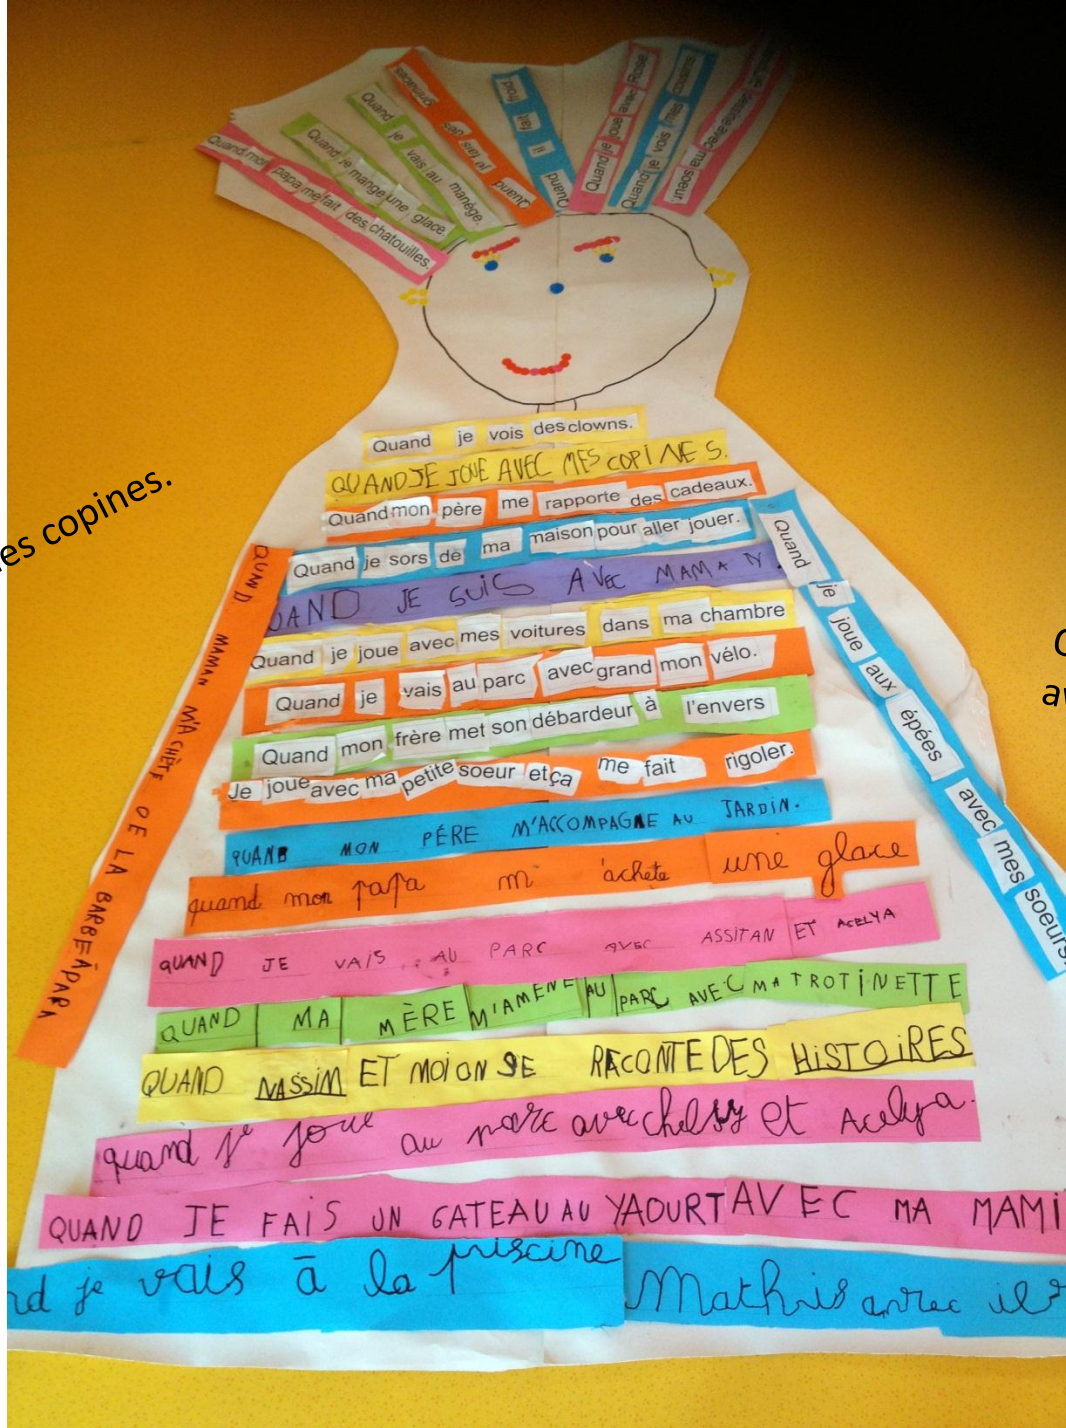 Quand mon papa me fait des chatouilles.
Quand je mange une glace.
Quand je vais au manège.
Quand je fais des grimaces
Quand il fait froid
Quand je joue avec Rose
Quand je vois mes cousins
avec ma soeur.
Quand je vois des clowns.
QUAND JE JOUE AVEC MES COPINES.
Quand mon père me rapporte des cadeaux.
Quand je sors de ma maison pour aller jouer.
UAND JE SUIS AVEC MAMAN.
Quand je joue avec mes voitures dans ma chambre
Quand je vais au parc avec grand mon vélo.
Quand mon frère met son débardeur à l'envers
Je joue avec ma petite soeur et ça me fait rigoler.
QUAND MON PÉRE M'ACCOMPAGNE AU JARDIN.
quand mon papa m'achete une glace
QUAND JE VAIS AU PARC AVEC ASSITAN ET ACELYA
QUAND MA MÈRE M'AMENE AU PARC AVEC MA TROTINETTE
QUAND NASSIM ET MOI ON SE RACONTE DES HISTOIRES
quand je joue au parc avec chelsy et Acelya.
QUAND JE FAIS UN GATEAU AU YAOURT AVEC MA MAMI
nd je vais à la piscine Mathis avec
QUAND MAMAN M'ACHÈTE DE LA BARBE À PAPA
Quand je joue aux épées avec mes soeurs.
es copines.